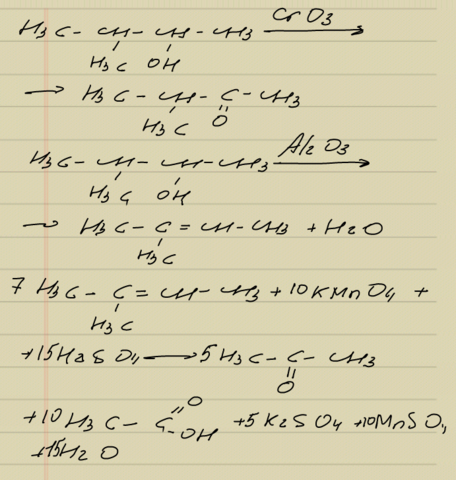 H3C - CH - CH - CH3 CrO3 →
H3C OH
→ H3C - CH - C - CH3
H3C O
H3C - CH - CH - CH3 Al2O3 →
H3C OH
→ H3C - C = CH - CH3 + H2O
H3C
7 H3C - C = CH - CH3 + 10KMnO4 +
H3C
+15H2SO4 → 5H3C - C - CH3
O
+10H3C - C O OH +5K2SO4 +10MnSO4
+15H2O